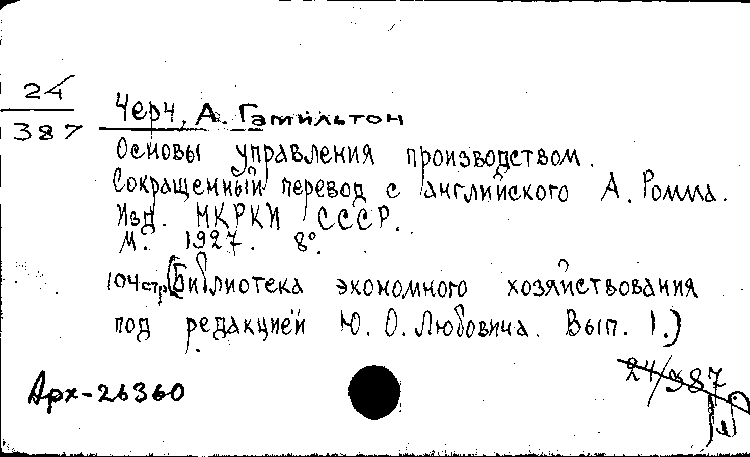 24
387
Черч, А. Гамильтон
Основы управления производством.
Сокращенный перевод с английского А. Ромма.
Изд. НКРКИ СССР.
М. 1927. 8°.
104 стр. (Библиотека экономного хозяйствования
под редакцией Ю. О. Любовича. Вып. 1.)
24/387
Арх-26360